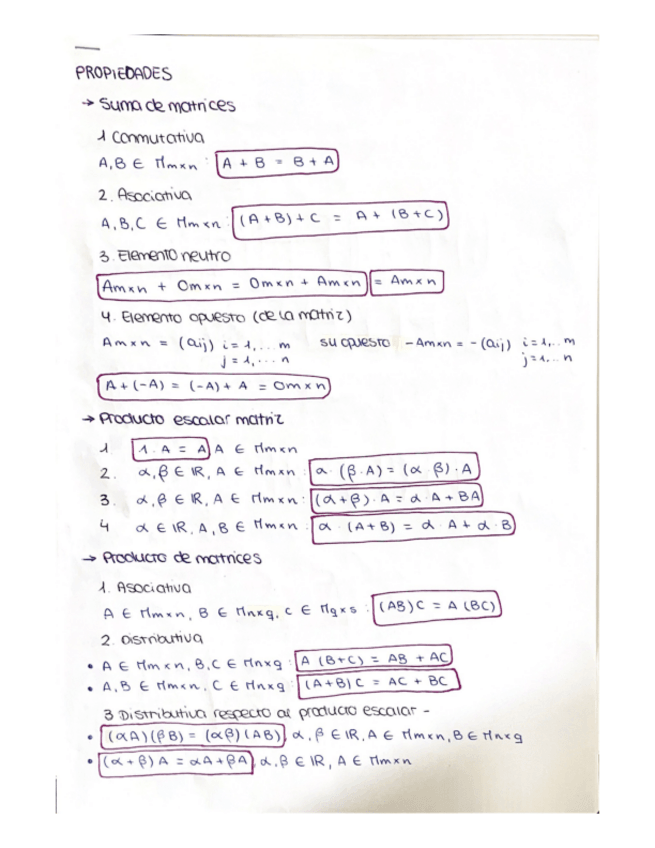 PROPIEDADES
→ Suma de matrices
1 Conmutativa
A,B ∈ Mm×n : A + B = B + A
2. Asociativa
A,B,C ∈ Mm×n : (A+B)+C = A+ (B+C)
3. Elemento neutro
Am×n + Om×n = Om×n + Am×n = Am×n
4. Elemento opuesto (de la matriz)
Am×n = (aij) i=1,... m su opuesto -Am×n = -(aij) i=1,... m
j=1,... n j=1,... n
A+(-A) = (-A)+A = Om×n
→ Producto escalar matriz
1 1·A = A A ∈ Mm×n
2. α,β ∈ IR, A ∈ Mm×n : α·(β·A) = (α·β)·A
3. α,β ∈ IR, A ∈ Mm×n : (α+β)·A = α·A+BA
4 α ∈ IR, A,B ∈ Mm×n : α·(A+B) = α·A+α·B
→ Producto de matrices
1. Asociativa
A ∈ Mm×n, B ∈ Mn×q, C ∈ Mq×s : (AB)C = A(BC)
2. Distributiva
• A ∈ Mm×n, B,C ∈ Mn×q : A (B+C) = AB + AC
• A,B ∈ Mm×n, C ∈ Mn×q : (A+B)C = AC + BC
3 Distributiva respecto al producto escalar -
• (αA)(βB) = (αβ)(AB), α,β ∈ IR, A ∈ Mm×n, B ∈ Mn×q
• (α+β)A = αA+βA, α,β ∈ IR, A ∈ Mm×n